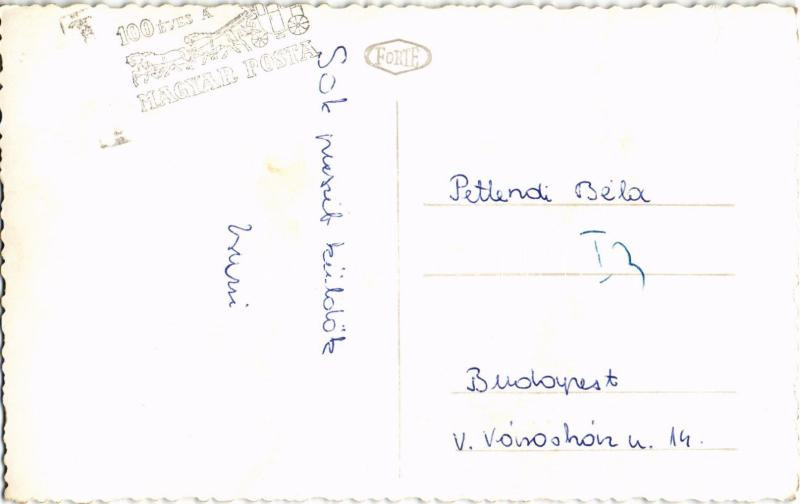 100 ÉVES A
MAGYAR POSTA
FORTE
Sok puszit küldök
Zsuzsi
Petlendi Béla
Budapest
V. Városház u. 14.